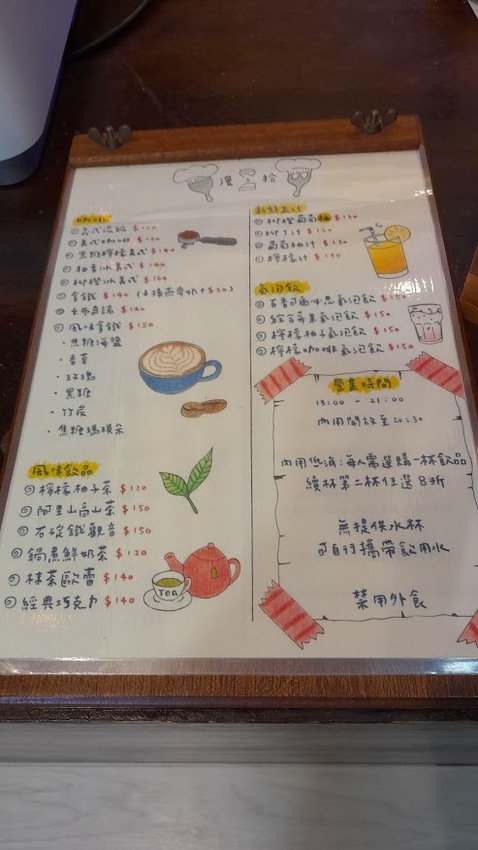 漫 拾
美式濃縮 $120
美式咖啡 $120
黑糖檸檬美式 $140
柚香冰美式 $140
柳橙冰美式 $140
拿鐵 $140 (+換燕麥奶+$30)
卡布奇諾 $140
風味拿鐵 $150
・焦糖海鹽
・香草
・玫瑰
・黑糖
・竹炭
・焦糖瑪琪朵
風味飲品
檸檬柚子茶 $120
阿里山高山茶 $150
石碇鐵觀音 $150
鍋煮鮮奶茶 $120
抹茶歐蕾 $140
經典巧克力 $140
TEA
新鮮果汁
柳橙葡萄柚 $130
柳丁汁 $130
葡萄柚汁 $130
檸檬汁 $130
氣泡飲
百香 氣泡飲 $150
綜合莓果氣泡飲 $150
檸檬柚子氣泡飲 $150
檸檬咖啡氣泡飲 $150
營業時間
13:00 - 21:00
內用開放至20:30
內用低消:每人需選購一杯飲品
續杯第二杯任選8折
無提供水杯
可自行攜帶飲用水
禁用外食